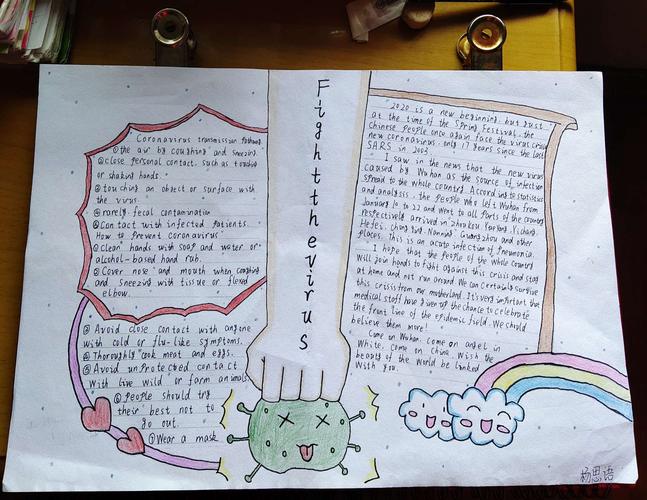 Coronavirus transmission pathway
①the air by coughing and sneezing.
②close personal contact, such as touching
or shaking hands.
③touching an object or surface with
the virus
④rarely fecal contamination
⑤Contact with infected patients.
How to prevent coronavirus
①Clean hands with soap and water or
alcohol-based hand rub.
②Cover nose and mouth when coughing
and sneezing with tissue or flexed
elbow.
③Avoid close contact with anyone
with cold or flu-like symptoms.
④Thoroughly cook meat and eggs.
⑤Avoid unprotected contact
with live wild or farm animals
⑥People should try
their best not to
go out.
⑦Wear a mask
Fightthevirus
2020 is a new beginning, but just
at the time of the Spring Festival, the
Chinese people once again face the virus crisis
new coronavirus, only 17 years since the last
SARS in 2003
I saw in the news that the new virus
caused by Wuhan as the source of infection
spread to the whole country. According to statistics
and analysis, the people who left Wuhan from
January 10 to 22 and went to all parts of the country
respectively arrived in Zhoukou Yueyang, Yichang,
Hefei, Chongqing, Nanning, Guangzhou and other
places. This is an acute infection of Pneumonia.
I hope that the people of the whole country
will join hands to fight against this crisis and stay
at home and not run around. We can certainly survive
this crisis from our motherland. It's very important that
medical staff have given up the chance to celebrate
the front line of the epidemic field. We should
believe them more!
Come on Wuhan, come on angel in
White, come on China. Wish the
beauty of the world be linked
with you.
杨思语